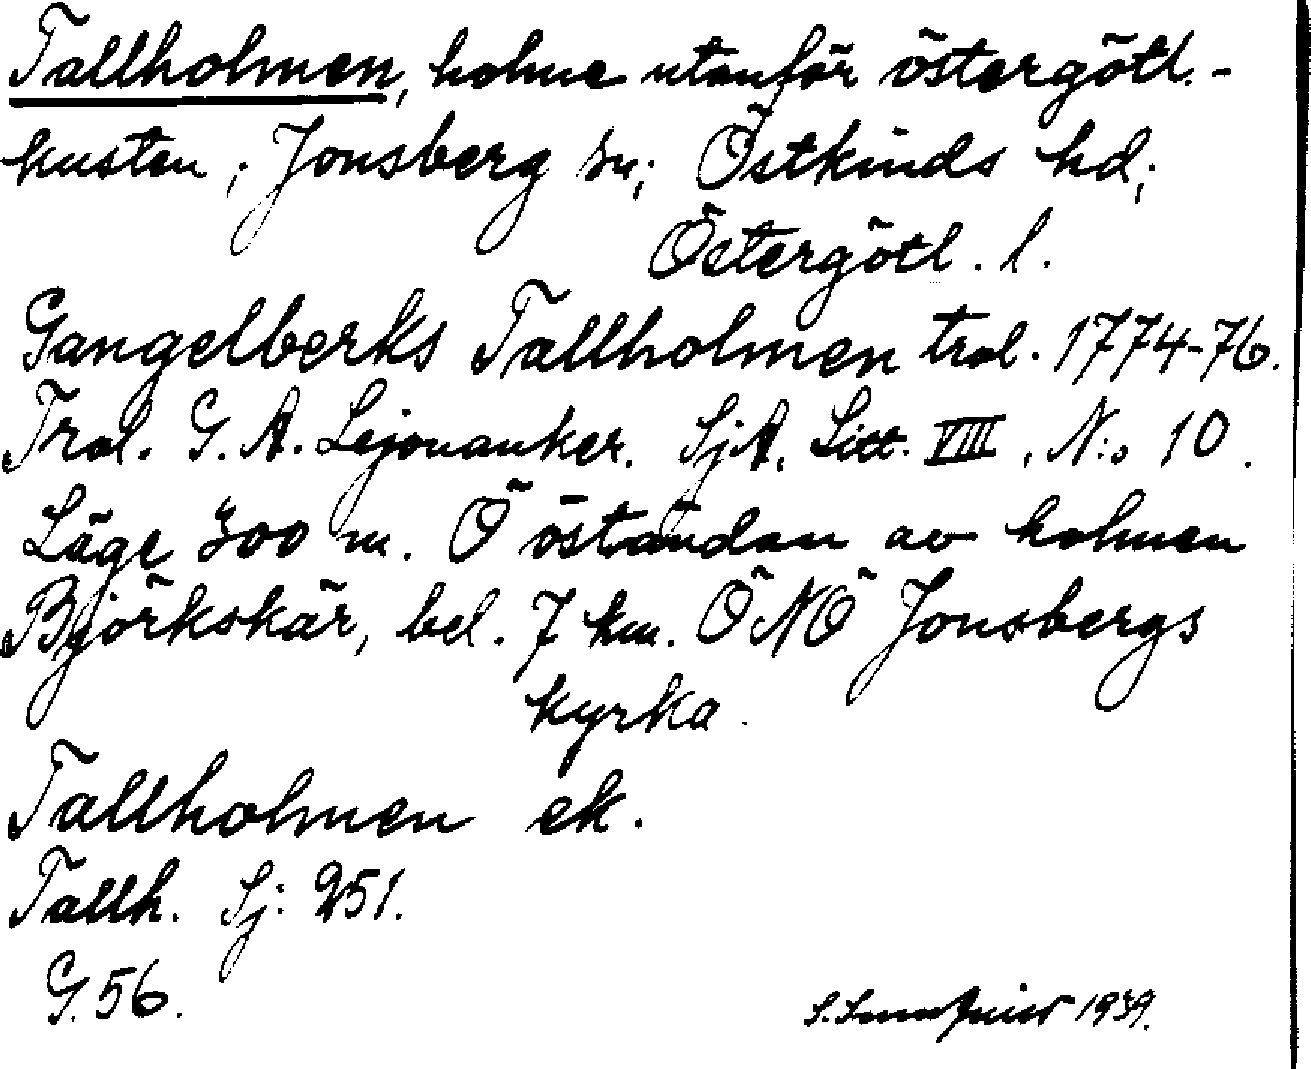 Tallholmen, holme utanför östergötl.-
kusten; Jonsberg sn; Östkinds hd;
Östergötl. l.
Gangelberks Tallholmen trol. 1774-76.
Trol. G. A. Lejonanker. SjA. Litt. VIII, N:o 10.
Läge 300 m. Ö östandan av holmen
Björkskär, bel. 7 km. ÖNÖ Jonsbergs
kyrka.
Tallholmen ek.
Tallh. Sj: 251.
G. 56.
S. 1939.